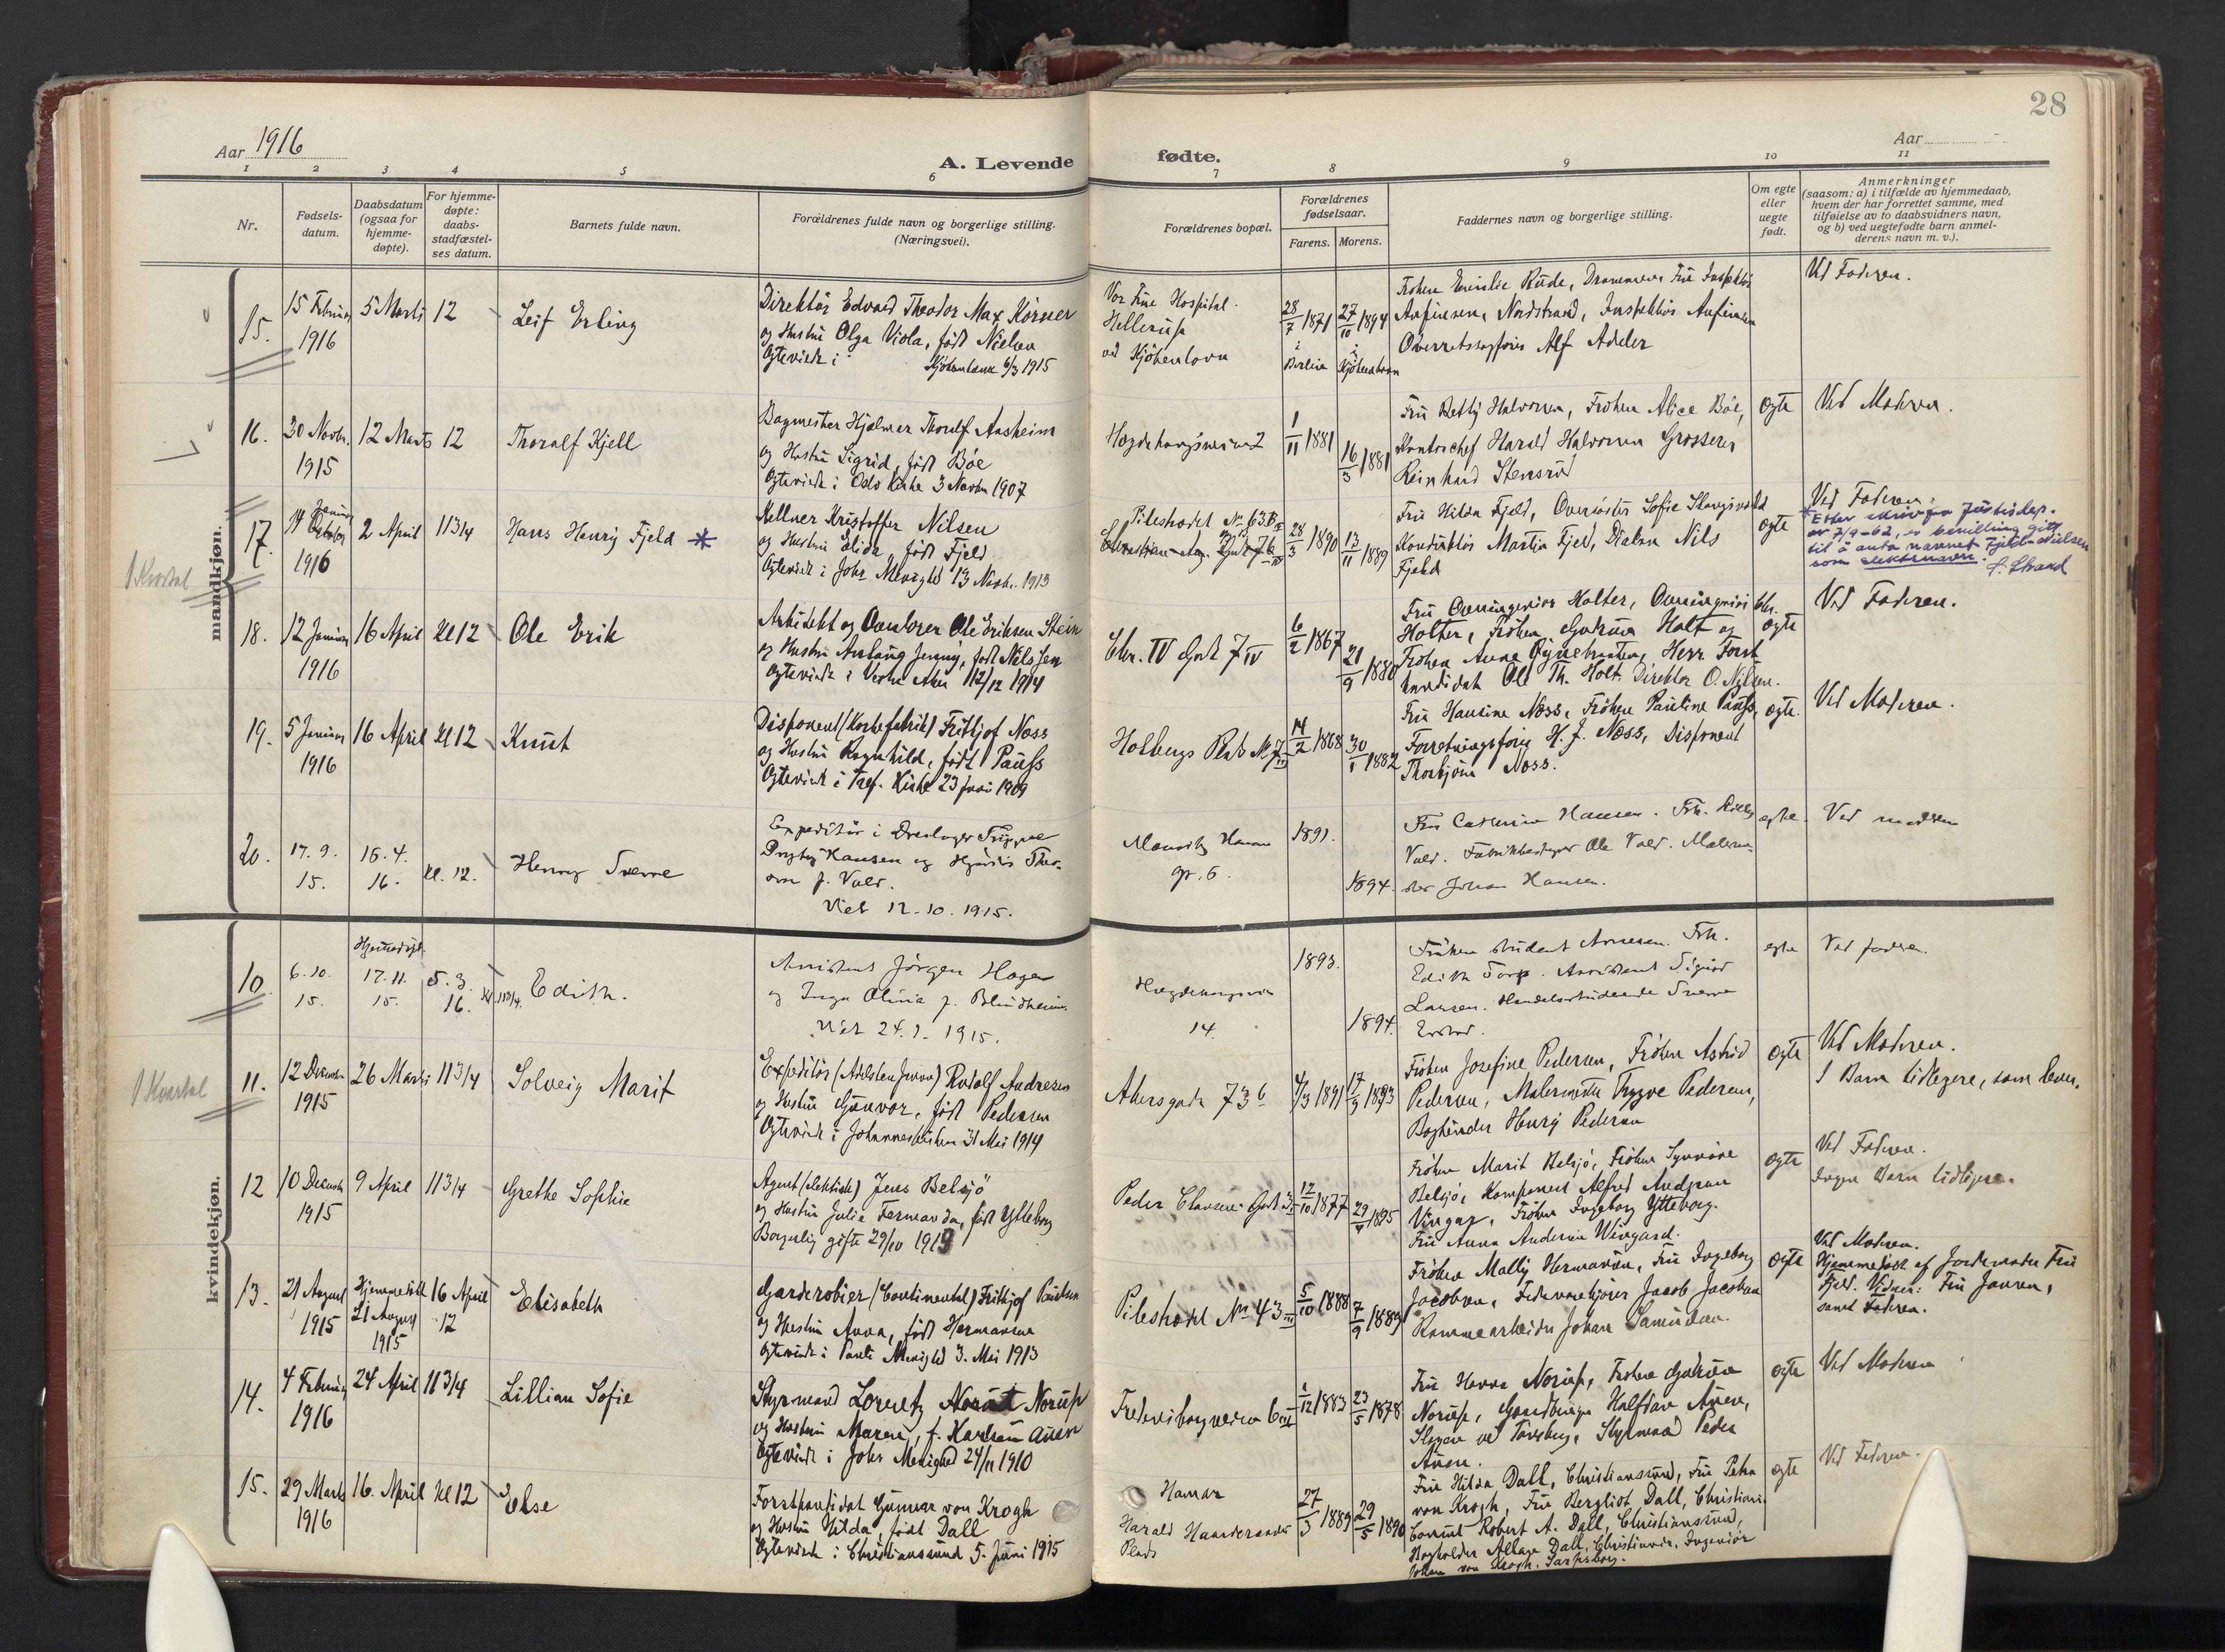 28
Aar 1916
A. Levende
fødte.
Aar
1 2 3 4 5 6 7 8 9 10 11
Nr.
Fødsels-
datum.
Daabsdatum
(ogsaa for
hjemme-
døpte).
For hjemme-
døpte:
daabs-
stadfæstel-
ses datum.
Barnets fulde navn.
Forældrenes fulde navn og borgerlige stilling.
(Næringsvei).
Forældrenes bopæl.
Forældrenes
fødselsaar.
Farens. Morens.
Faddernes navn og borgerlige stilling.
Om egte
eller
uegte
født.
Anmerkninger
(saasom: a) i tilfælde av hjemmedaab,
hvem der har forrettet samme, med
tilføielse av to daabsvidners navn,
og b) ved uegtefødte barn anmel-
derens navn m. v.).
mandkjøn.
1 Kvartal
15.
15 Februar
1916
5 Marts
12
Leif Erling
Direktør Edvard Theodor Max Körner
og Hustru Olga Viola, født Nielsen
Egteviede i Kjöbenhavn 6/3 1915
Vor Frue Hospital.
Hellerup
ved Kjöbenhavn
28/7 1871
i
Berlin
27/10 1894
i
Kjöbenhavn
Frøken Emilie Rude, Drammen, Fru Inspektör
Anfinsen, Nordstrand, Inspektör Anfinsen
Overretssagfører Alf Adeler
Ved Faderen.
16.
30 Novbr.
1915
12 Marts
12
Thoralf Kjell
Bagmester Hjalmar Thoralf Aasheim
og Hustru Sigrid, født Böe
Egteviede i Oslo Kirke 3 Novbr 1907
Hegdehaugsveien 2
1/11 1881
16/3 1881
Fru Betty Halvorsen, Fröken Alice Böe,
Kontorchef Harald Halvorsen Grosserer
Reinhard Stensrud
egte
Ved Moderen.
17.
14 Januar
1916
2 April
11 3/4
Hans Henry Fjeld *
Kellner Kristoffer Nilsen
og Hustru Elida, født Fjeld
Egteviede i Johs Menighed 13 Novbr. 1913
Pilestrædet No 63
28/3 1890
13/11 1889
Fru Hilda Fjeld,
Konduktör Martin Fjeld, Nils
Fjeld
egte
Ved Faderen.
* Etter skriv fra Justisdep.
av 7/9-62, er bevilling gitt
til å anta navnet Fjeld-Nielsen
som slektsnavn. S. Strand
18.
12 Januar
1916
16 April
Kl 12
Ole Erik
Arkitekt og Ole Eriksen Stein
og Hustru Aslaug Jenny, født Nilssen
Egteviede i Vestre Aker 12/12 1914
Chr. IV Gade 7 IV
6/2 1867
21/9 1880
Fru Overingeniør Holter, Overingeniør Chr.
Holter, Frøken Gudrun Holt og
Frøken Anna Herr Forst
kandidat Ole Th. Holt. Direktör O. Nilsen.
egte
Ved Faderen.
19.
5 Januar
1916
16 April
Kl 12
Knut
Disponent (Korkefabrik) Fritjof Næss
og Hustru Ragnhild, født Pauss
Egteviede i Tref. Kirke 23 Juni 1909
Holbergs Plads No 7
14/2 1868
30/1 1882
Fru Hansine Næss, Fröken Pauline Pauss,
Forretningsfører H. J. Næss, Disponent
Thorbjörn Næss.
egte.
Ved Moderen.
20.
17. 9.
15.
16. 4.
16.
Kl. 12.
Henry Sverre
Expeditör i Trygve
Hansen og Hjørdis Theo-
f. Vold.
Viet 12.10.1915.
Hans
gr. 6.
1891.
1894.
Fru Cathrine Hansen. Frk.
Vold. Fabrikbestyrer Ole Vold. Malerme-
ster Johan Hansen.
egte.
Ved moderen
kvindekjøn.
1 Kvartal
10.
6. 10.
15.
Hjemmedøpt
17. 11.
15.
5. 3.
16.
Kl. 11 3/4.
Edith.
Assistent Jörgen Hagen
og Inga Olivia f. Blindheim.
Viet 24. 1. 1915.
Hegdehaugsvn
14.
1893.
1894.
Frøken student Arnesen. Frk.
Edith Torp. Assistent Sigurd
Larsen. Handelsstuderende Sverre
egte
Ved faderen.
11.
12 Decembr
1915
26 Marts
11 3/4
Solveig Marit
Expeditör Rudolf Andresen
og Hustru Gunvor, født Pedersen
Egteviede i Johanneskirken 31 Mai 1914
Akersgade 73 b
4/3 1891
17/3 1893
Fröken Josefine Pedersen, Fröken Astrid
Pedersen, Malermester Trygve Pedersen,
Bogbinder Henry Pedersen
egte
Ved Moderen.
1 Barn tidligere, som lever.
12
10 Decembr
1915
9 April
11 3/4
Grethe Sophie
Agent (elektrisk) Jens Belsjö
og Hustru Julie Fernanda, født Ytteborg
Borgerlig gifte 29/10 1915
Peder Claussöns Gade 3
12/10 1877
29/ 1895
Fröken Marit Belsjö, Fröken Synnöve
Belsjö, Komponist Alfred Andersen
Vingar, Fröken Ingeborg Ytteborg.
Fru Anna Andersen Wingard.
egte
Ved Faderen.
Ingen Barn tidligere.
13.
21 August
1915
Hjemmedøbt
21 August
1915
16 April
12
Elisabeth
Garderobier (Continental) Fritjof Paulsen
og Hustru Anna, født Hermansen
Egteviede i Pauli Menighed 3. Mai 1913
Pilestrædet No 43 III
5/10 1888
7/9 1889
Fröken Mally Hermansen, Fru Ingeborg
Jacobsen, Jacob Jacobsen
Rammearbeider Johan Samuelsen.
egte
Ved Moderen.
Hjemmedøbt af Jordemoder Fru
Fjeld. Vidner: Fru Jansen,
samt Faderen.
14.
4 Februar
1916
24 April
11 3/4
Lillian Sofie
Styrmand Lorentz Norup
og Hustru Maren, f. Karlsen Auen
Egteviede i Johs Menighed 24/11 1910
Fredensborgveien 6
1/12 1883
23/5 1878
Fru Hanna Norup, Frøken Gudrun
Norup, Gaardbruger Halfdan Auen,
Slagen ved Tønsberg, Styrmand Peder
Auen.
egte
Ved Moderen
15.
29 Marts
1916
16. April
Kl 12
Else
Forstkandidat Gunnar von Krogh
og Hustru Hilda, født Dall
Egteviede i Christianssund 5. Juni 1915
Hamar
Harald Haardraades
Plads
27/3 1889
29/5 1890
Fru Hilda Dall, Christianssund, Fru Petra
von Krogh, Fru Bergliot Dall, Christiania
Consul Robert A. Dall, Christianssund,
Bogholder Dall, Christiania, Ingeniör
Johan von Krogh, Sarpsborg.
egte
Ved Faderen.